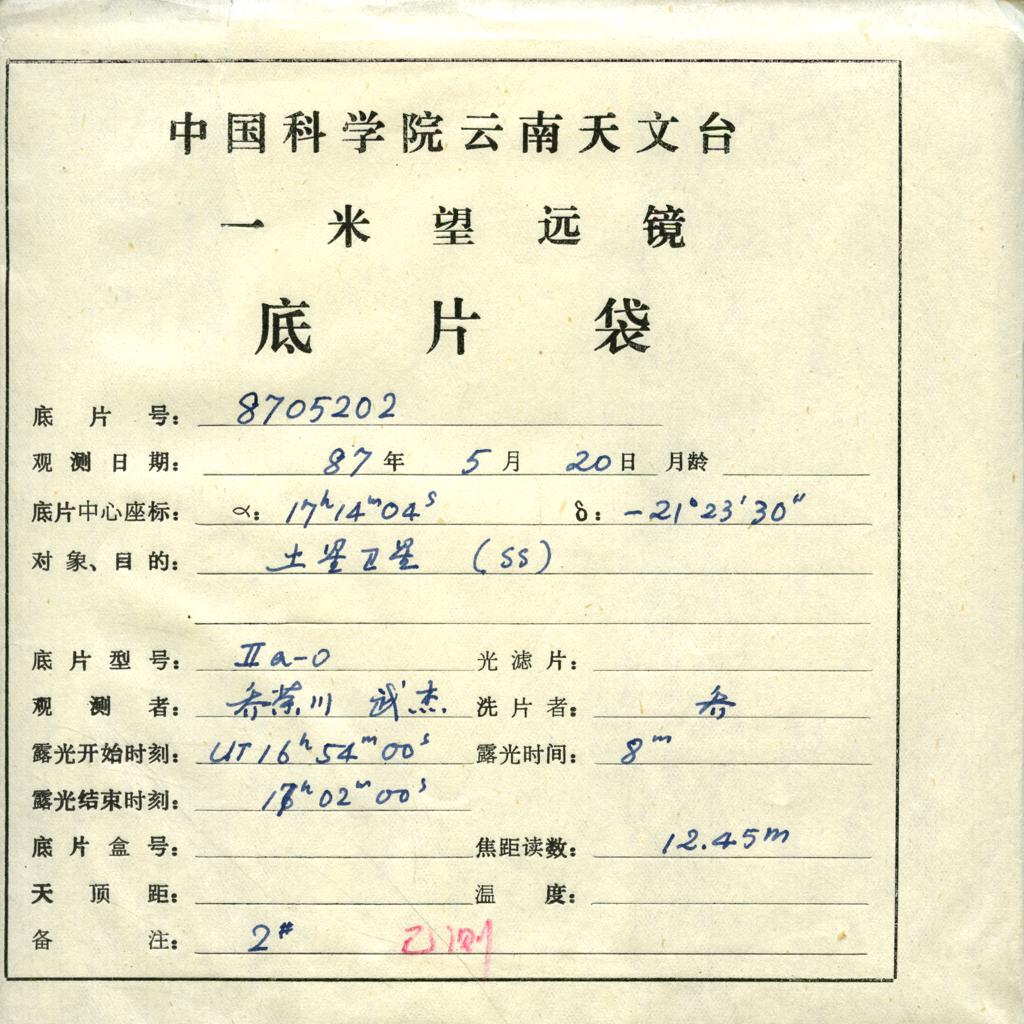 中国科学院云南天文台
一米望远镜
底片袋
底片号: 8705202
观测日期: 87年 5月 20日 月龄
底片中心座标: α: 17ʰ14ᵐ04ˢ δ: -21°23′30″
对象、目的: 土星卫星 (SS)
底片型号: IIa-O 光滤片:
观测者: 乔荣川 武杰 洗片者: 乔
露光开始时刻: UT 16ʰ54ᵐ00ˢ 露光时间: 8ᵐ
露光结束时刻: 17ʰ02ᵐ00ˢ
底片盒号: 焦距读数: 12.45m
天顶距: 温度:
备注: 2# 已测